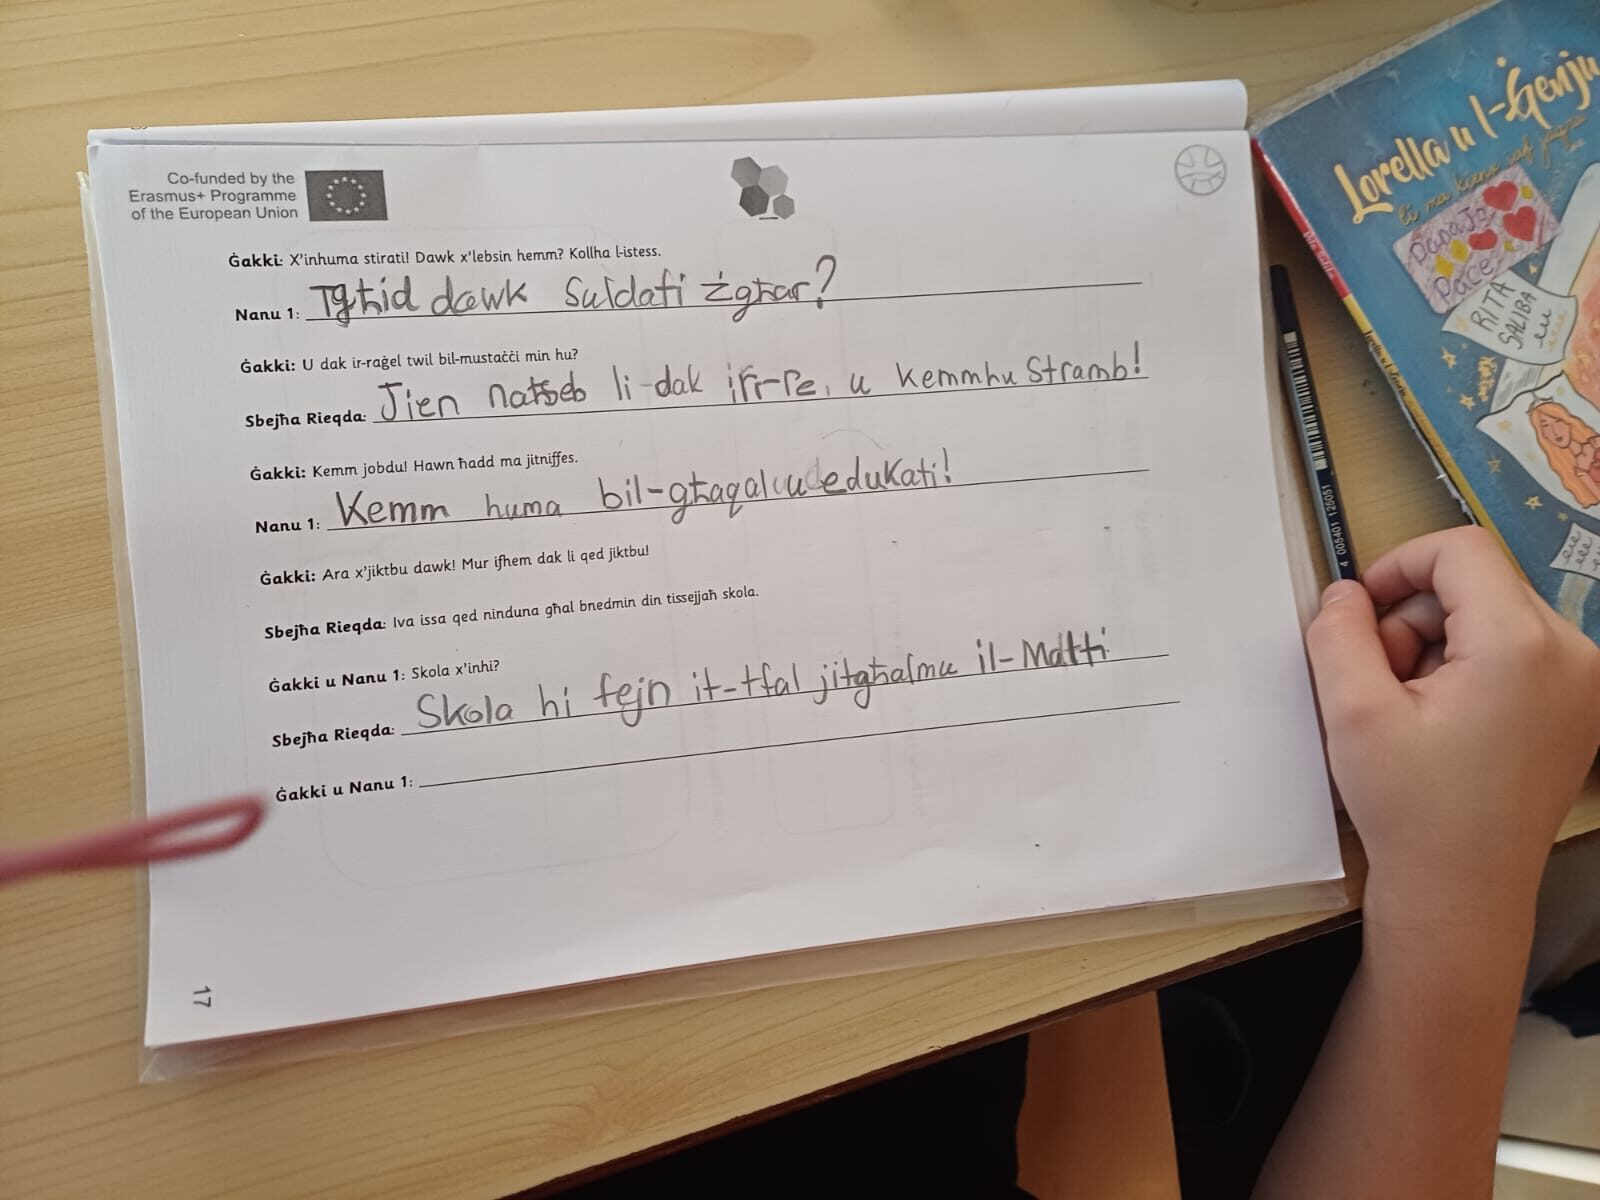 Co-funded by the
Erasmus+ Programme
of the European Union
Ġakki: X'inhuma stirati! Dawk x'lebsin hemm? Kollha l-istess.
Nanu 1: Tgħid dawk Suldati żgħar?
Ġakki: U dak ir-raġel twil bil-mustaċċi min hu?
Sbejħa Rieqda: Jien naħseb li dak ir-re, u kemmhu Stramb!
Ġakki: Kemm jobdu! Hawn ħadd ma jitniffes.
Nanu 1: Kemm huma bil-għaqal u edukati!
Ġakki: Ara x'jiktbu dawk! Mur ifhem dak li qed jiktbu!
Sbejħa Rieqda: Iva issa qed ninduna għal bnedmin din tissejjaħ skola.
Ġakki u Nanu 1: Skola x'inhi?
Sbejħa Rieqda: Skola hi fejn it-tfal jitgħalmu il-Malti
Ġakki u Nanu 1:
17
Lorella u l-Ġenju
li ma kienx jaf jaqra
Pace
RITA
SALIBA
4 005401 126051